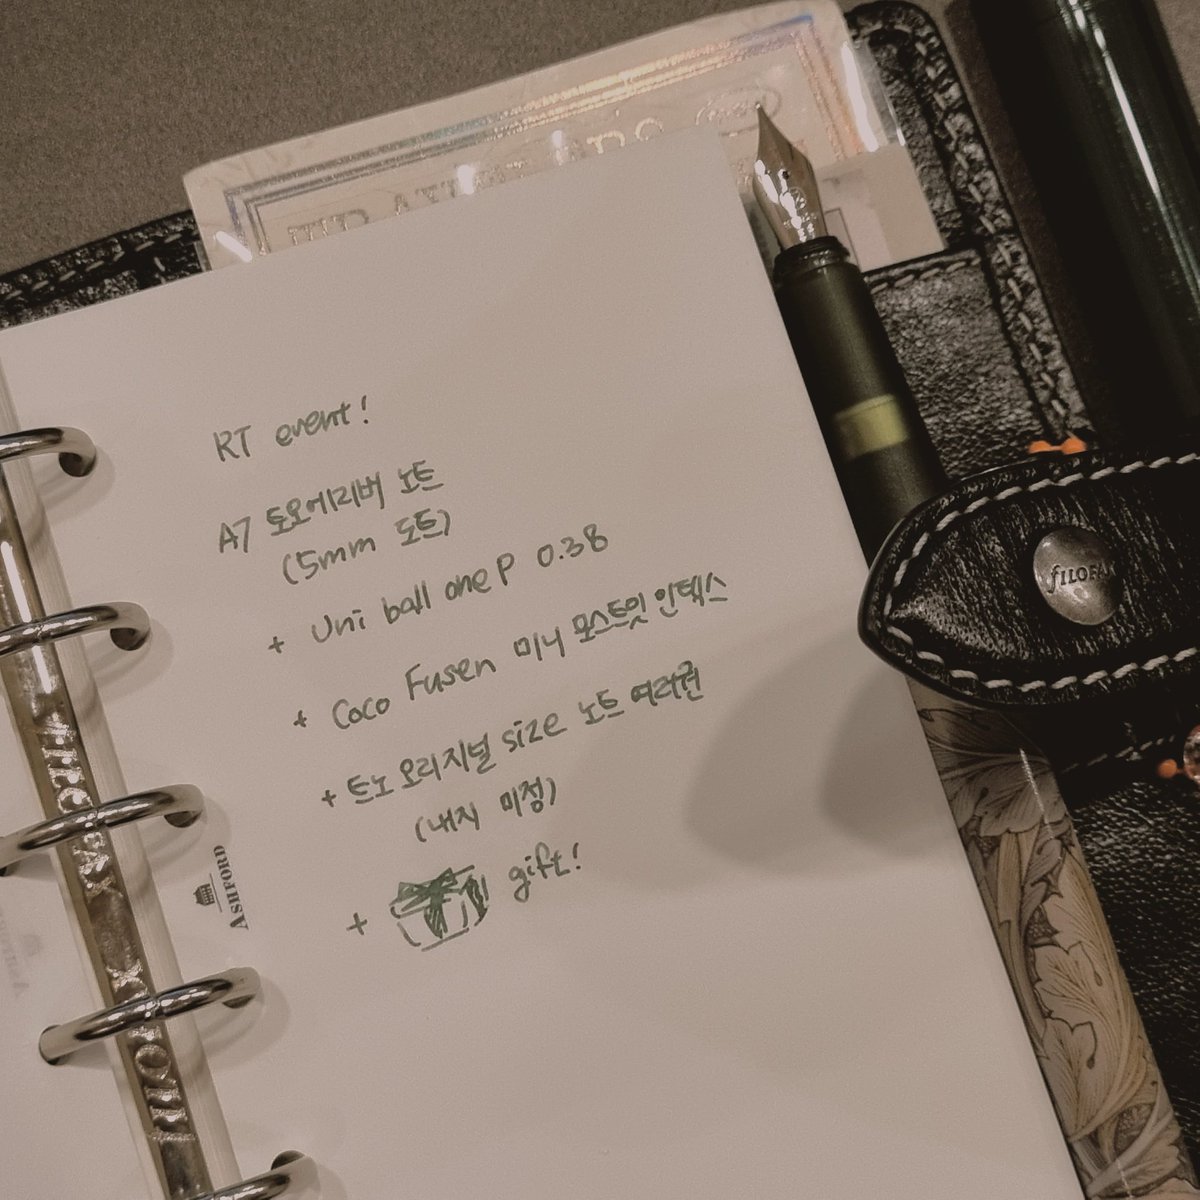 RT event!
A7 토모에리버 노트
(5mm 도트)
+ Uni ball one P 0.38
+ Coco Fusen 미니 포스트잇 인덱스
+ 트노 오리지널 size 노트 여러권
(내지 미정)
+ gift!
ASHFORD